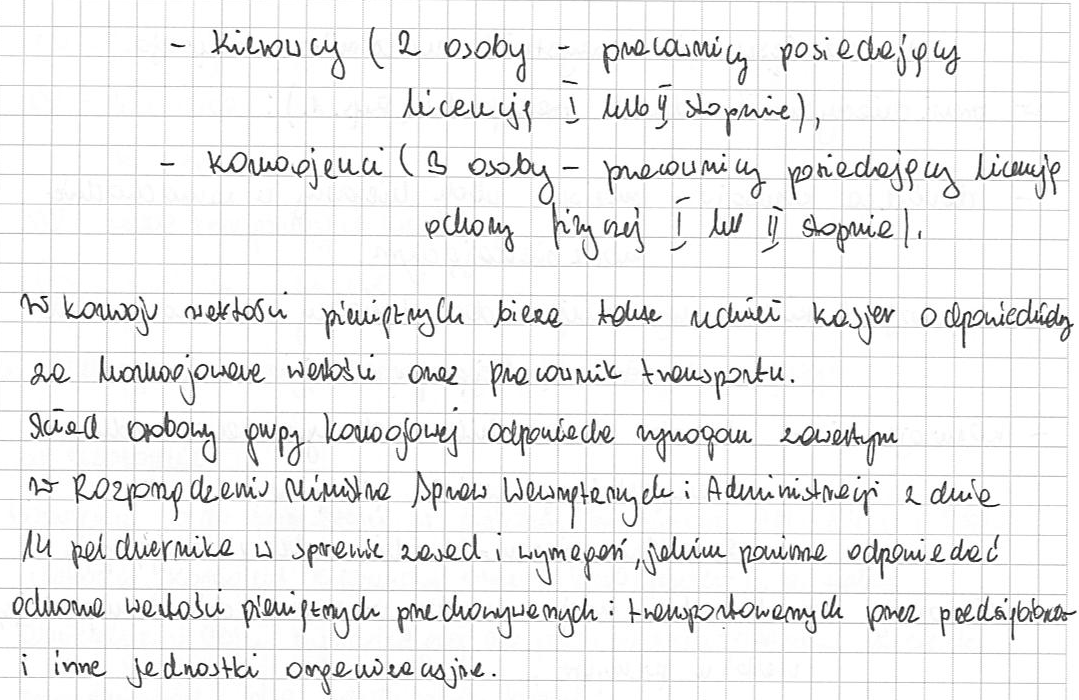 - Kierowcy (2 osoby - pracownicy posiadający
licencję I lub II stopnia),
- Konwojenci (3 osoby - pracownicy posiadający licencję
ochony fizycznej I lub II stopnia).
W konwoju wartości pieniężnych bierze także udział kasjer odpowiedzialny
za konwojowane wartości oraz pracownik transportu.
Skład osobowy grupy konwojowej odpowiada wymogom zawartym
w Rozporządzeniu Ministra Spraw Wewnętrznych i Administracji z dnia
14 października w sprawie zasad i wymagań, jakim powinna odpowiadać
ochrona wartości pieniężnych przechowywanych i transportowanych przez przedsiębiorców
i inne jednostki organizacyjne.